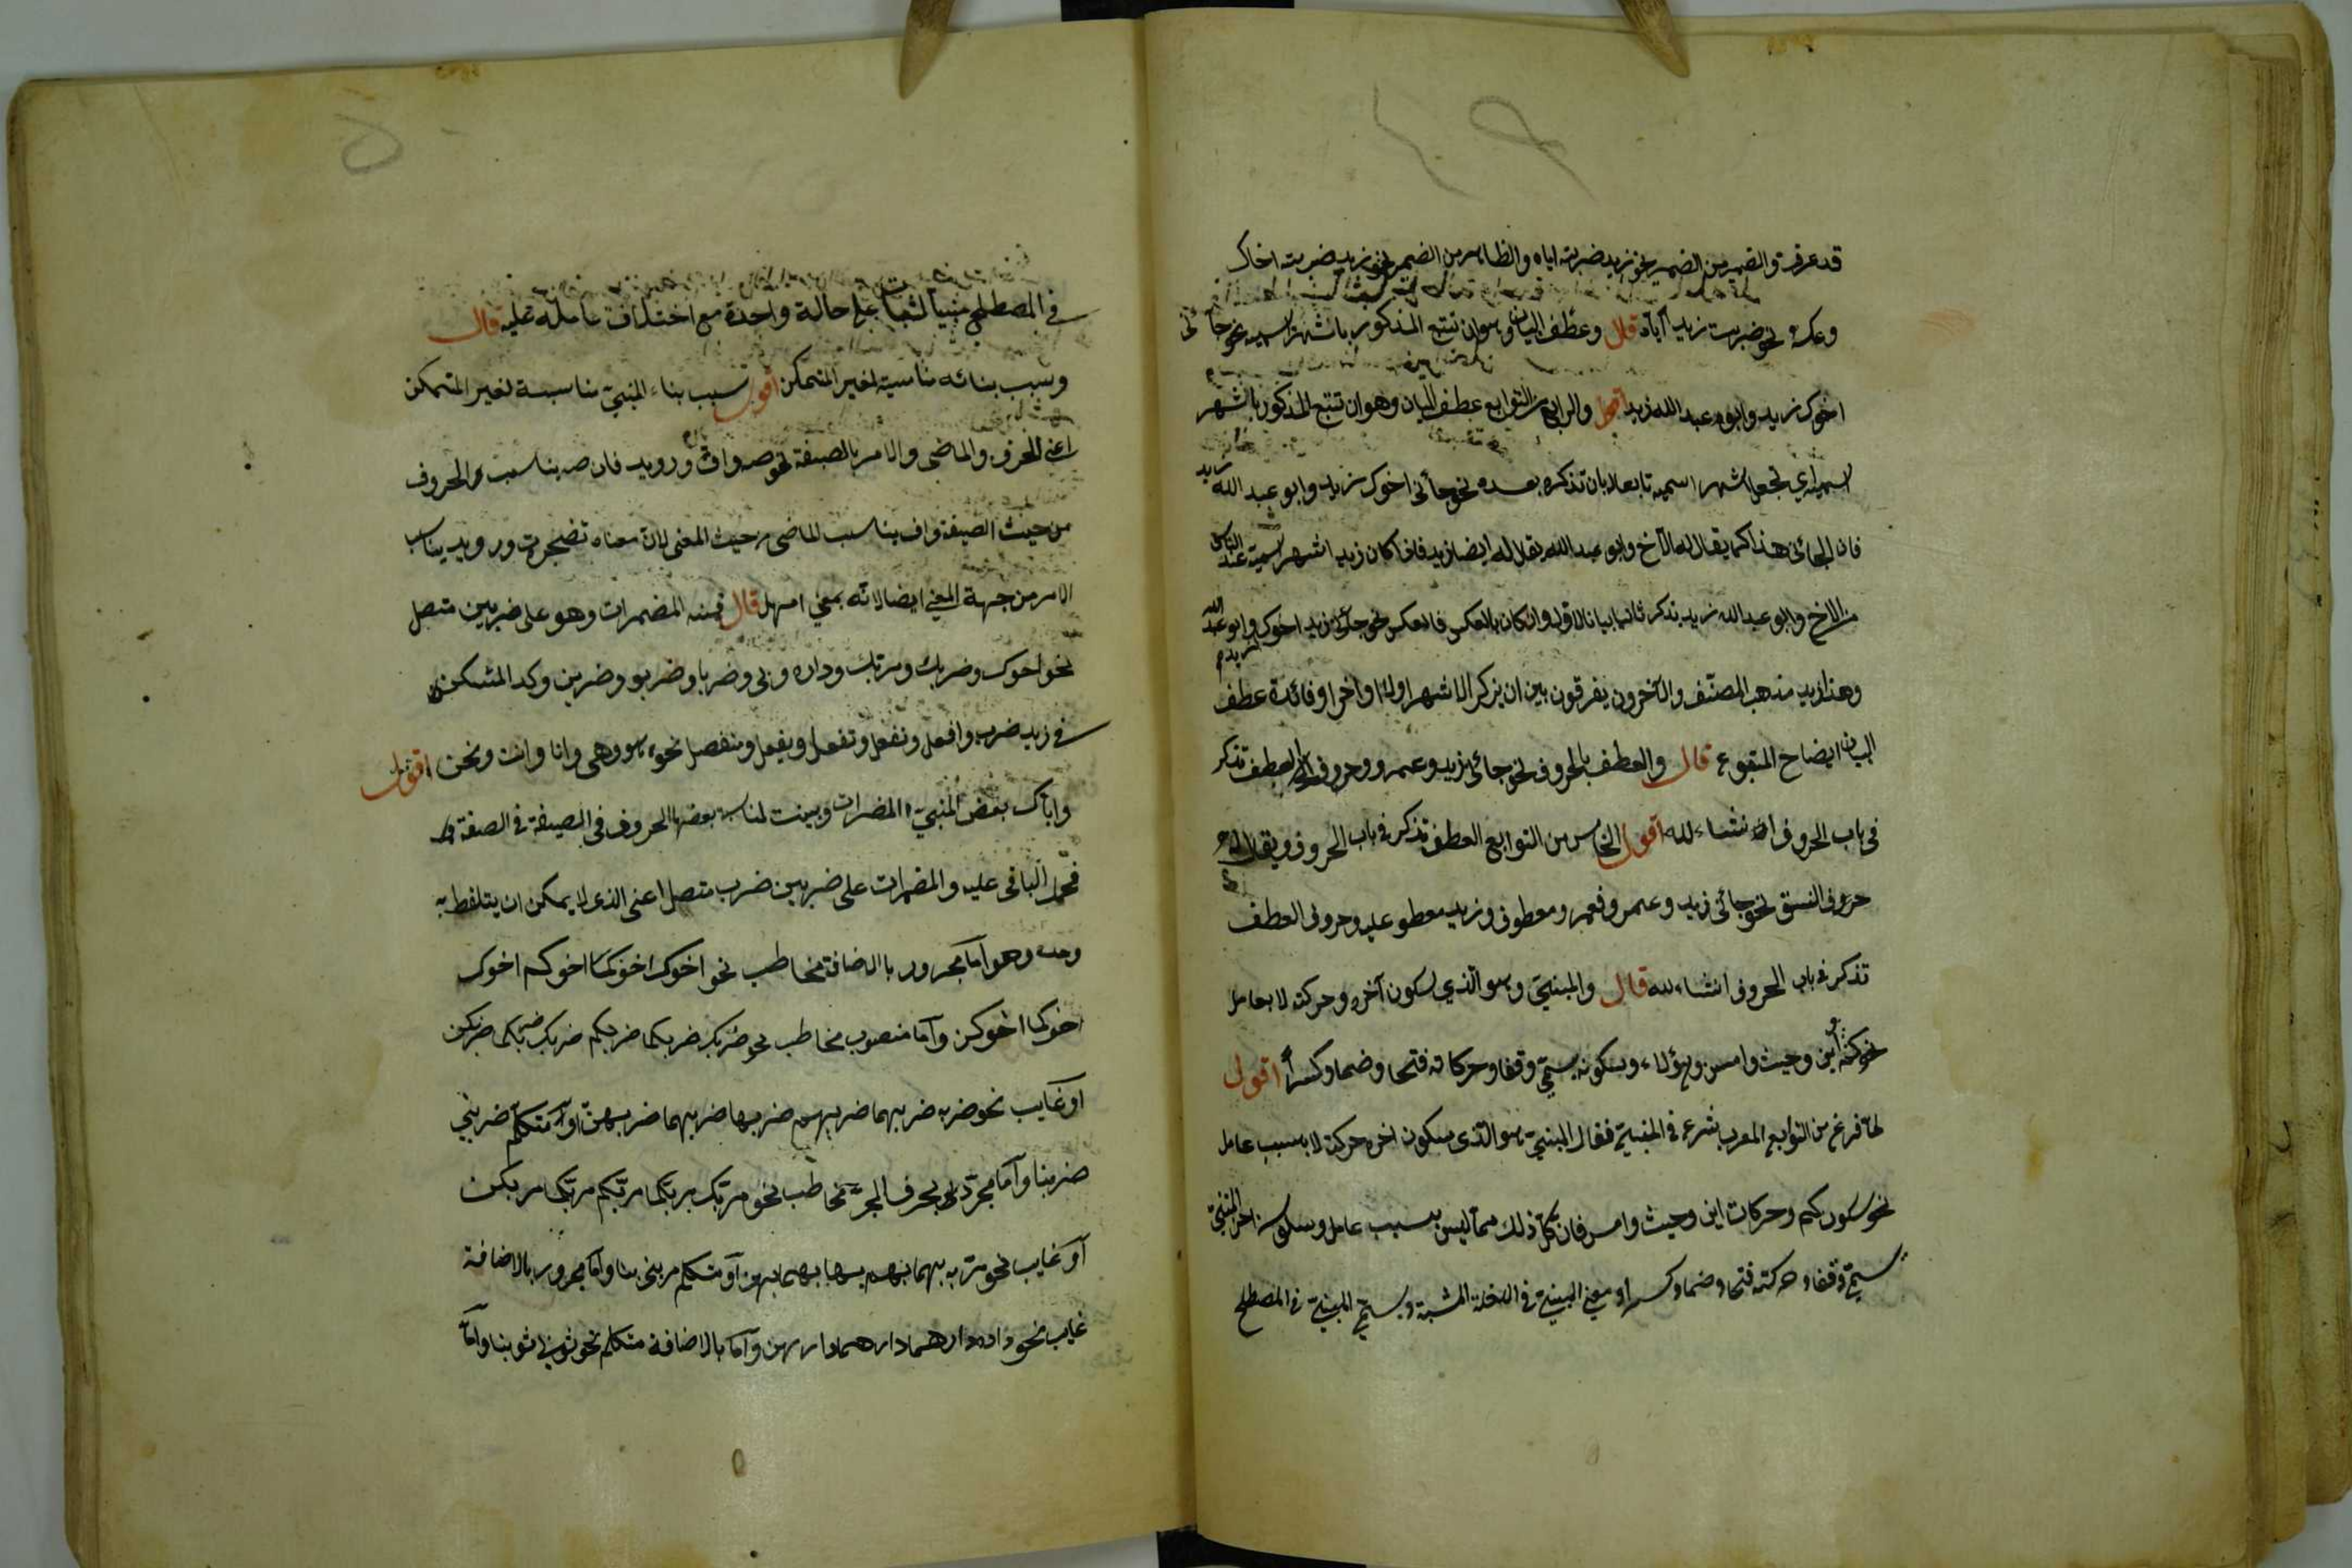 قد عرفت والضمير من الضمير نحو زيد ضربته اياه والظاهر من الضمير نحو زيد ضربته اخاك
وعكسه نحو ضربت زيدا اياه قال وعطف البيان وهو ان تتبع المذكور باشهر اسميه نحو جائنى
اخوك زيد وابو عبد الله زيد اقول والرابع من التوابع عطف البيان وهو ان تتبع المذكور باشهر
اسميه اي تجعل اشهر اسميه تابعا بان تذكره بعده نحو جائنى اخوك زيد وابو عبد الله زيد
فان الجائى هذا كما يقال له الاخ وابو عبد الله يقال له ايضا زيد فاذا كان زيد اشهر اسميه عند الناس
من الاخ وابو عبد الله زيد يذكر ثانيا بيانا للاول وان كان بالعكس فالعكس نحو جائنى زيد اخوك وابو عبد الله
وهذا زيد مذهب المصنف والآخرون يفرقون بين ان يذكر الاشهر اولا او اخرا وفائدة عطف
البيان ايضاح المتبوع قال والعطف بالحروف نحو جائنى زيد وعمرو وحروف العطف تذكر
فى باب الحروف ان شاء الله اقول الخامس من التوابع العطف تذكر فى باب الحروف ويقال لها
حروف النسق نحو جائنى زيد وعمرو فعمرو معطوف وزيد معطوف عليه وحروف العطف
تذكر فى باب الحروف انشاء الله قال والمبنىّ وهو الذي سكون آخره وحركته لا بعامل
نحو كم واين وحيث وامس وهؤلاء وسكونه يسمّى وقفا وحركاته فتحا وضما وكسراً اقول
لما فرغ من التوابع المعرب شرع فى المبنىّ فقال المبنىّ هو الذى سكون اخره وحركته لا بسبب عامل
نحو سكون كم وحركات اين وحيث وامس فان كلّ ذلك ممّا ليس بسبب عامل وسكون اخر المبنىّ
يسمّى وقفا وحركته فتحا وضما وكسرا ومعنى المبنىّ فى اللغة المثبت ويسمّى المبنىّ فى المصطلح
فى المصطلح مبنيا لثباته على حالة واحدة مع اختلاف عامله عليه قال
وسبب بنائه مناسبة لغير المتمكن اقول سبب بناء المبنىّ مناسبة لغير المتمكن
اعنى الحرف والماضى والامر بالصيغة نحو صه واف ورويد فان صه يناسب الحروف
من حيث الصيغة واف يناسب الماضى من حيث المعنى لان معناه تضجرت ورويد يناسب
الامر من جهة المعنى ايضا لانه بمعنى امهل قال فمنه المضمرات وهو على ضربين متصل
نحو اخوك وضربك ومر بك وداره وبى وضربا وضربوا وضربن وكذا المستكن
فى زيد ضرب وافعل ونفعل وتفعل ويفعل ومنفصل نحو هو وهى وانا وانت ونحن اقول
واياك بعض المبنىّ المضمرات وبنيت لمناسبة بعضها الحروف فى الصيغة
فحمل الباقى عليه والمضمرات على ضربين ضرب متصل اعنى الذى لا يمكن ان يتلفظ به
وحده وهو اما مجرور بالاضافة مخاطب نحو اخوك اخوكما اخوكم اخوك
اخوكما اخوكن وامّا منصوب مخاطب نحو ضربك ضربكما ضربكم ضربك ضربكما ضربكن
او غايب نحو ضربه ضربهما ضربهم ضربها ضربهما ضربهنّ او متكلّم ضربنى
ضربنا وامّا مجرور بحرف الجرّ مخاطب نحو مر بك مر بكما مر بكم مر بكما مر بكن
او غايب نحو مرّ به بهما بهم بها بهما بهن او متكلم مر بى بنا وامّا مجرور بالاضافة
غايب نحو داره دارهما دارهم دارهن وامّا بالاضافة متكلم نحو ثوبى ثوبنا وامّا